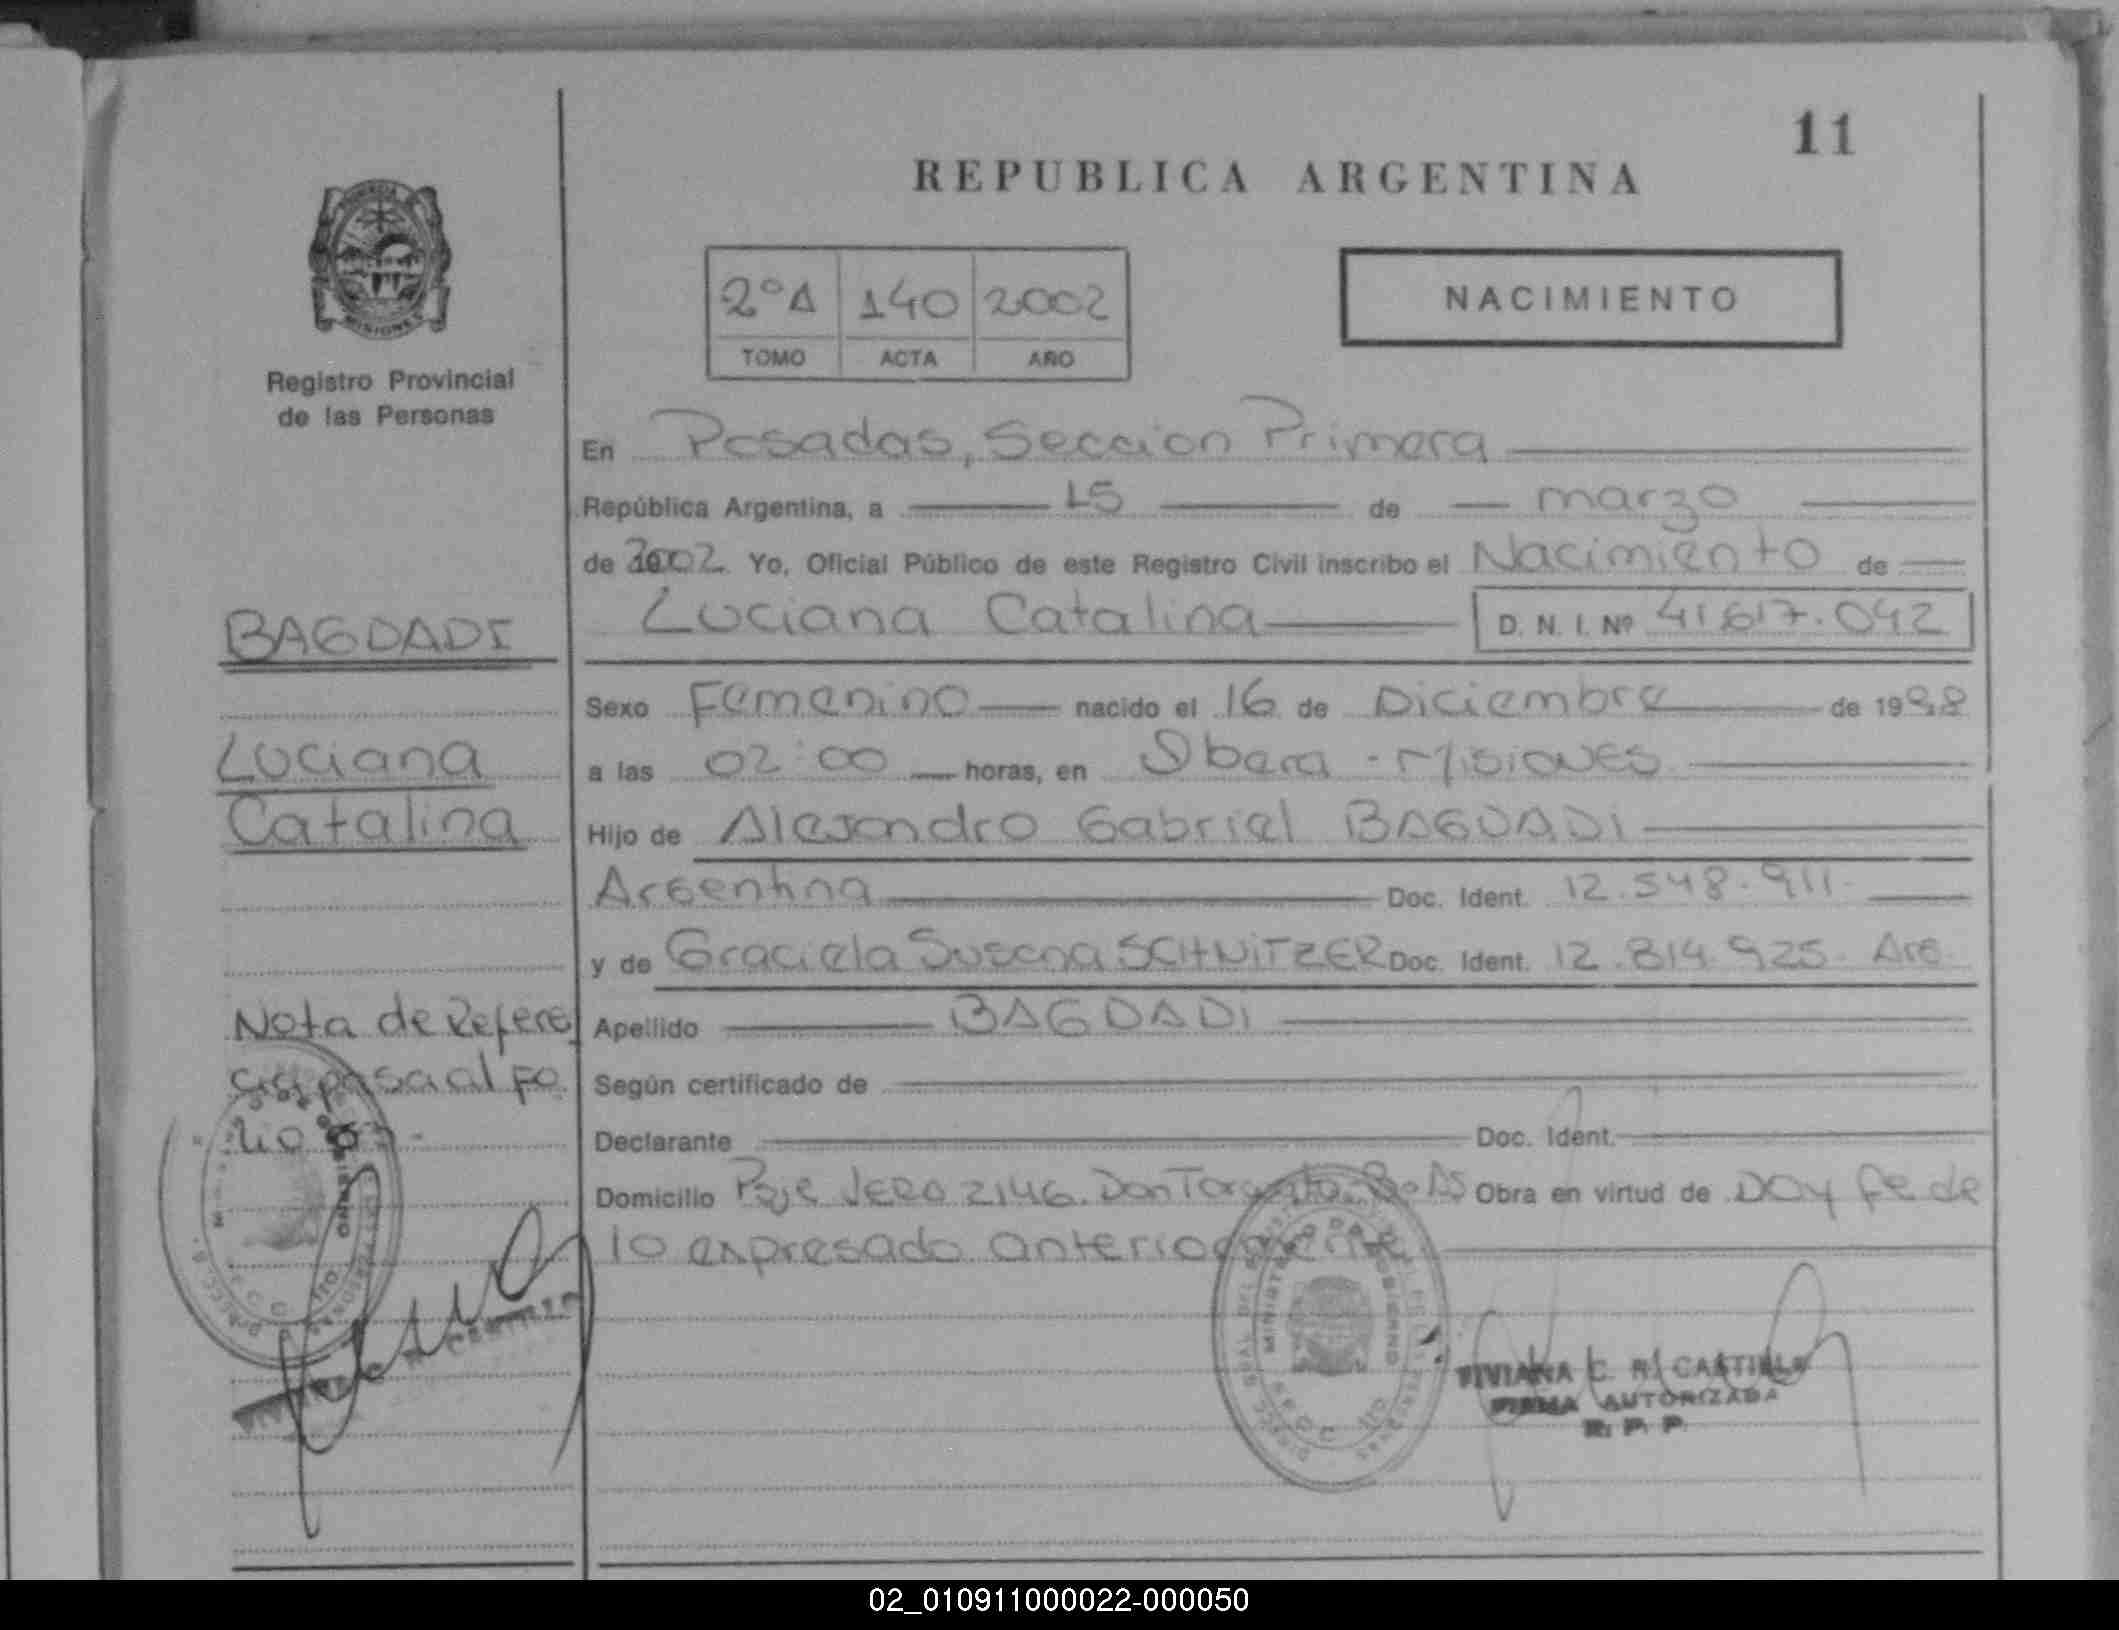 11
REPUBLICA ARGENTINA
2º A 140 2002
TOMO ACTA AÑO
NACIMIENTO
MISIONES
Registro Provincial
de las Personas
En Posadas, Seccion Primera
República Argentina, a 15 de marzo
de 2002 Yo, Oficial Público de este Registro Civil inscribo el Nacimiento de
Luciana Catalina D. N. I. Nº 41.617.042
BAGDADI
Sexo Femenino nacido el 16 de Diciembre de 1998
Luciana
a las 02:00 horas, en Obera - Misiones
Catalina
Hijo de Alejandro Gabriel BAGDADI
Argentina Doc. Ident. 12.548.911.
y de Graciela Susana SCHNITZER Doc. Ident. 12.814.925. Arg.
Nota de Referen
cia pasa al fo
lio
Apellido BAGDADI
Según certificado de
Declarante Doc. Ident.
Domicilio Pje VERA 2146. Don Bs As Obra en virtud de DOY fe de
lo expresado anteriormente
MINISTERIO DE GOBIERNO
VIVIANA C. R. CASTILLO
FIRMA AUTORIZADA
R. P. P.
02_010911000022-000050